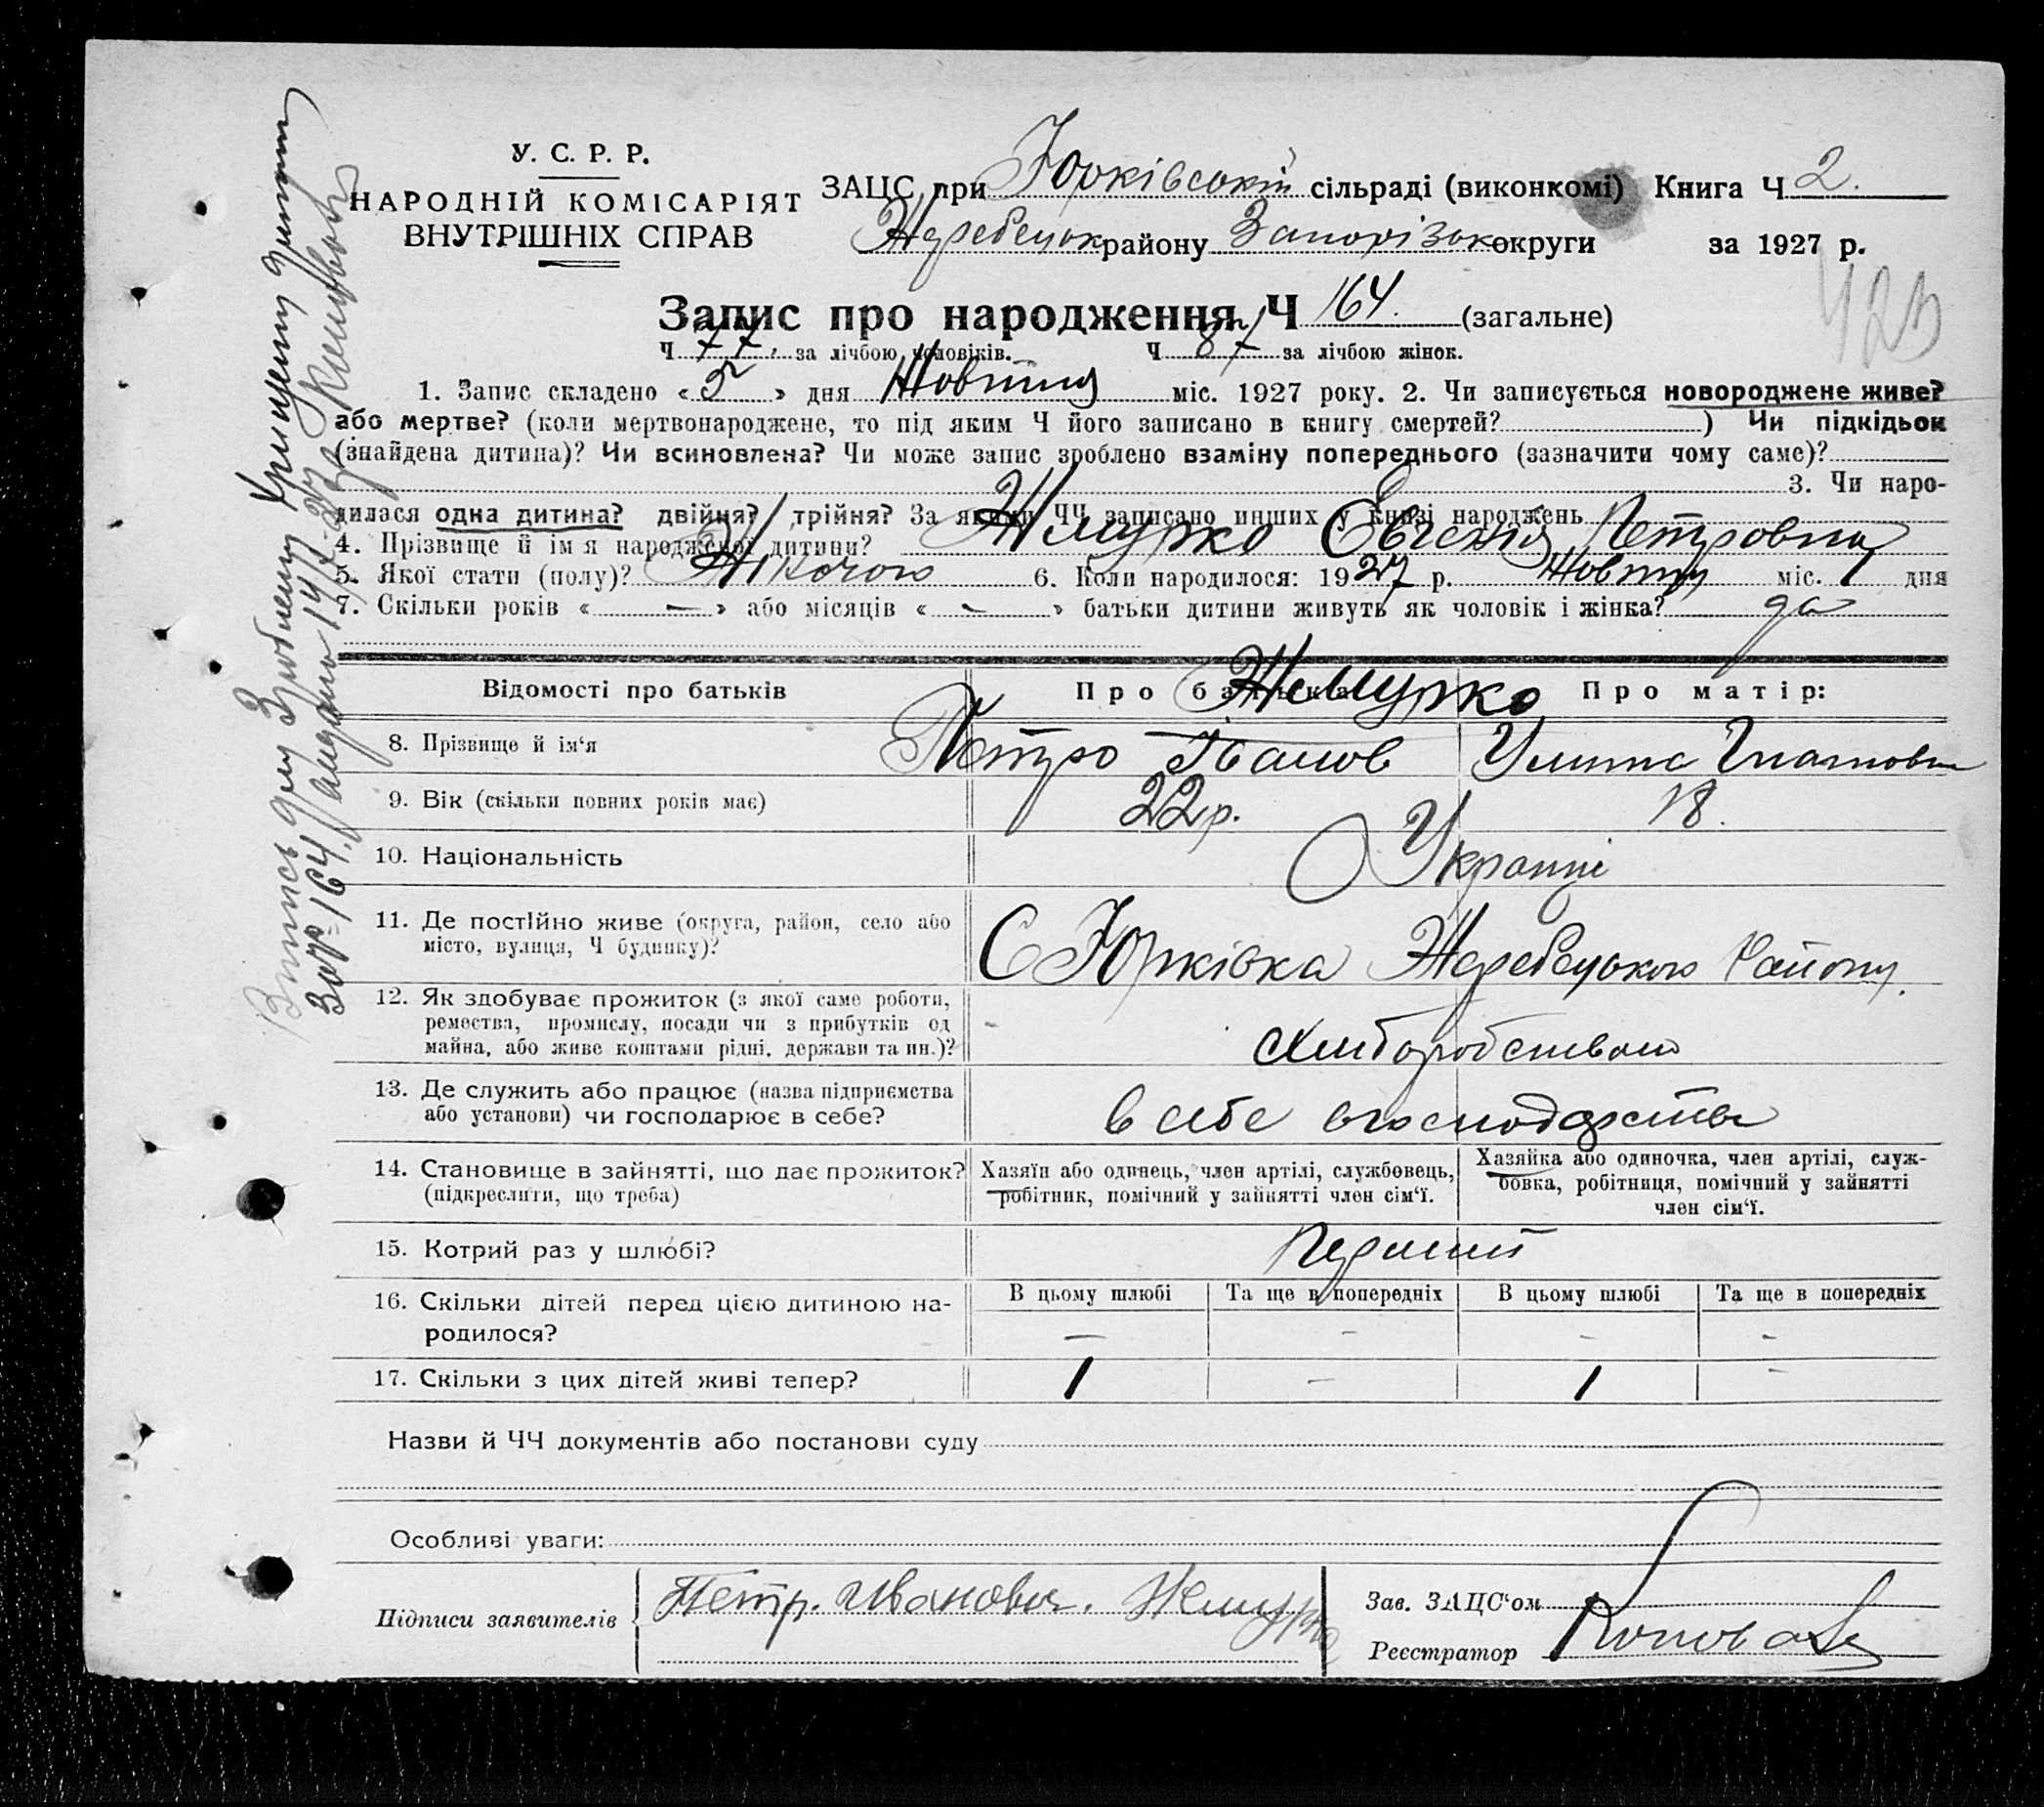 У. С. Р. Р.
НАРОДНІЙ КОМІСАРІЯТ
ВНУТРІШНІХ СПРАВ
ЗАЦС при Юрківській сільраді (виконкомі) Книга Ч 2.
Жеребецьк району Запорізьк округи за 1927 р.
Запис про народження Ч 164. (загальне)
Ч 77. за лічбою чоловіків. Ч 87 за лічбою жінок.
1. Запис складено « 5 » дня Жовтня міс. 1927 року. 2. Чи записується новороджене живе?
або мертве? (коли мертвонароджене, то під яким Ч його записано в книгу смертей? ) Чи підкідьок
(знайдена дитина)? Чи всиновлена? Чи може запис зроблено взаміну попереднього (зазначити чому саме)?
3. Чи наро-
дилася одна дитина? двійня? трійня? За якими ЧЧ записано инших у книзі народжень
4. Прізвище й ім я народженої дитини? Жемурко Євгенія Петровна
5. Якої стати (полу)? Жіночою 6. Коли народилося: 1927 р. Жовтня міс. 1 дня
7. Скільки років « — » або місяців « — » батьки дитини живуть як чоловік і жінка? да
Відомості про батьків Про батька Про матір:
Жемурко
8. Прізвище й ім'я Петро Іванов Улита Игнатовна
9. Вік (скільки повних років має) 22 р. 18.
10. Національність Украпнці
11. Де постійно живе (округа, район, село або
місто, вулиця, Ч будинку)?
С Юрківка Жеребецького Району.
12. Як здобуває прожиток (з якої саме роботи,
ремества, промислу, посади чи з прибутків од
майна, або живе коштами рідні, держави та ин.)?
хлиборобством
13. Де служить або працює (назва підприємства
або установи) чи господарює в себе?
в себе в господарстве
14. Становище в зайнятті, що дає прожиток?
(підкреслити, що треба)
Хазяїн або одинець, член артілі, службовець,
робітник, помічний у зайнятті член сім'ї.
Хазяйка або одиночка, член артілі, служ-
бовка, робітниця, помічний у зайнятті
член сім'ї.
15. Котрий раз у шлюбі? Первый
16. Скільки дітей перед цією дитиною на-
родилося?
В цьому шлюбі Та ще в попередніх В цьому шлюбі Та ще в попередніх
— - - -
17. Скільки з цих дітей живі тепер? 1 — 1 —
Назви й ЧЧ документів або постанови суду
Особливі уваги:
Підписи заявителів Петр. Иванович. Жемурко
Зав. ЗАЦС'ом
Реєстратор